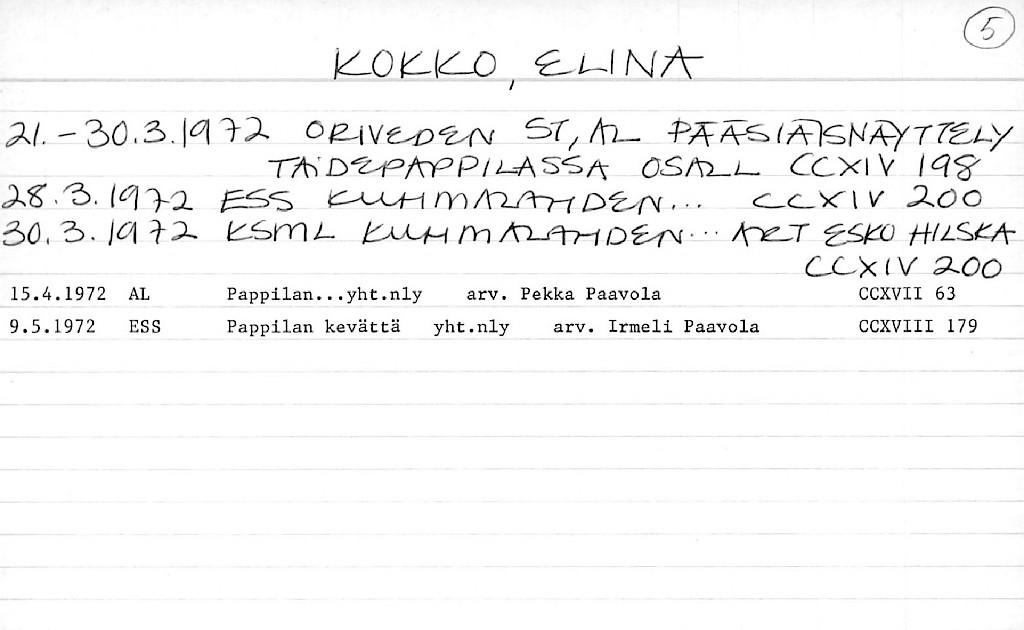 5
KOKKO, ELINA
21.-30.3.1972 ORIVEDEN ST, AL PÄÄSIÄISNÄYTTELY
TAIDEPAPPILASSA OSALL CCXIV 198
28.3.1972 ESS KUHMALAHDEN... CCXIV 200
30.3.1972 KSML KUHMALAHDEN... ART ESKO HILSKA
CCXIV 200
15.4.1972 AL Pappilan...yht.nly arv. Pekka Paavola CCXVII 63
9.5.1972 ESS Pappilan kevättä yht.nly arv. Irmeli Paavola CCXVIII 179